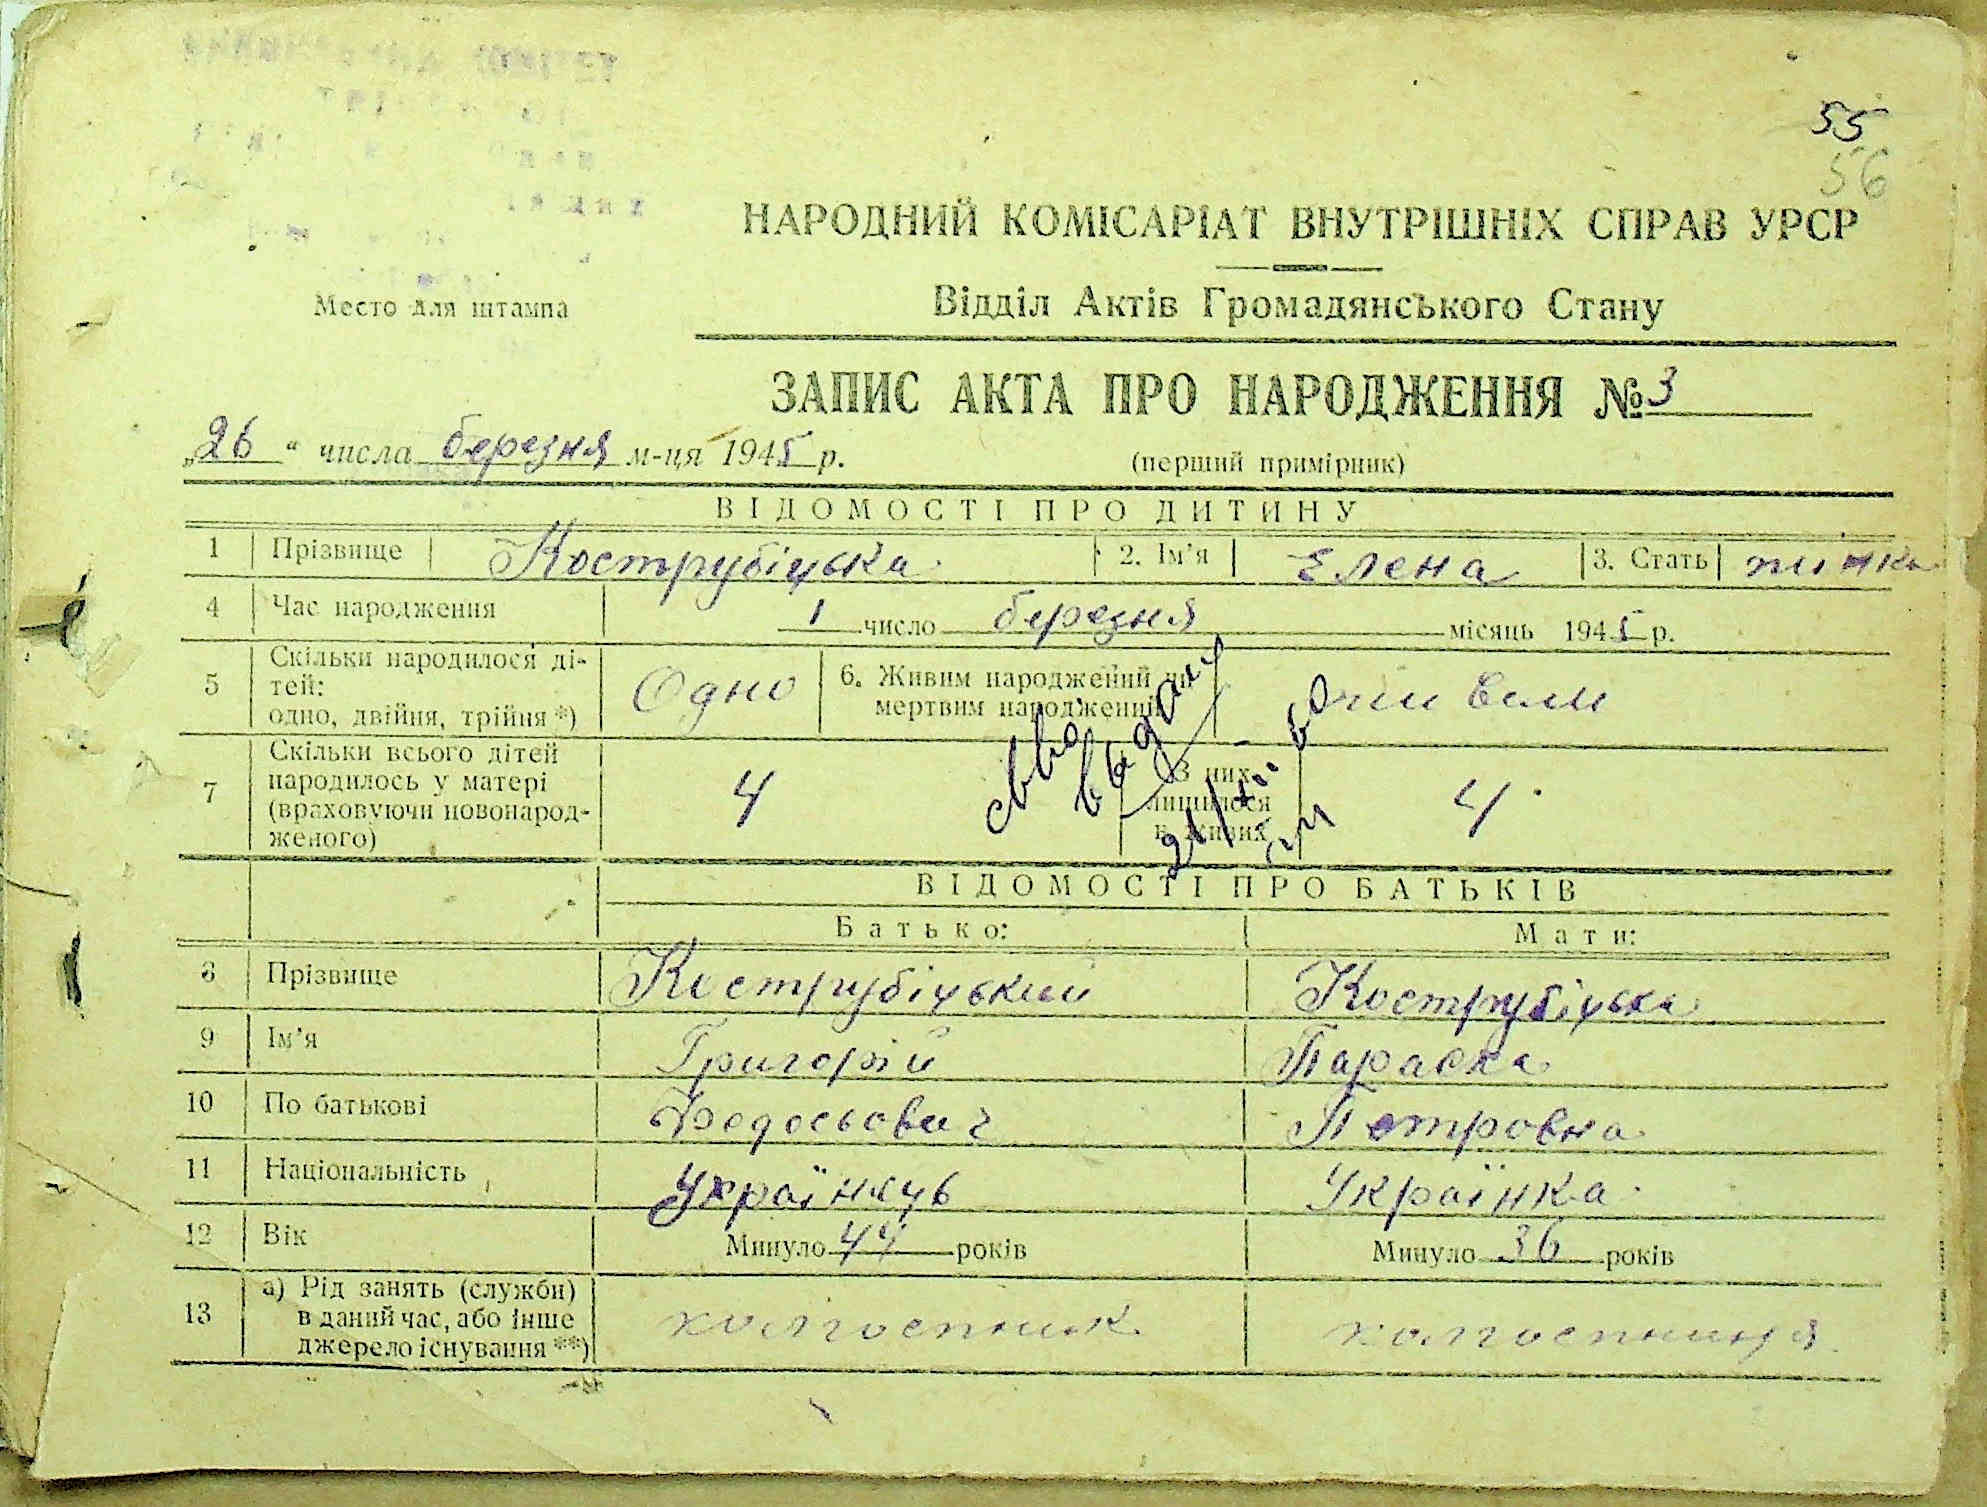 55
56
НАРОДНИЙ КОМІСАРІАТ ВНУТРІШНІХ СПРАВ УРСР
Место для штампа
Відділ Актів Громадянського Стану
ЗАПИС АКТА ПРО НАРОДЖЕННЯ № 3
„26“ числа березня м-ця 1945 р.
(перший примірник)
ВІДОМОСТІ ПРО ДИТИНУ
1 Прізвище Кострубіцька 2. Ім'я Елена 3. Стать жінка
4 Час народження 1 число березня місяць 1945 р.
5 Скільки народилося ді-
тей:
одно, двійня, трійня *) Одно 6. Живим народжений чи
мертвим народжений
7 Скільки всього дітей
народилось у матері
(враховуючи новонарод-
женого) 4 З них
лишилося
в живих 4
ВІДОМОСТІ ПРО БАТЬКІВ
Батько: Мати:
8 Прізвище Кострубіцький Кострубіцька
9 Ім'я Григорій Параска
10 По батькові Федосьович Петровна
11 Національність Українець Українка
12 Вік Минуло 44 років Минуло 36 років
13 а) Рід занять (служби)
в даний час, або інше
джерело існування **) колгоспник колгоспниця